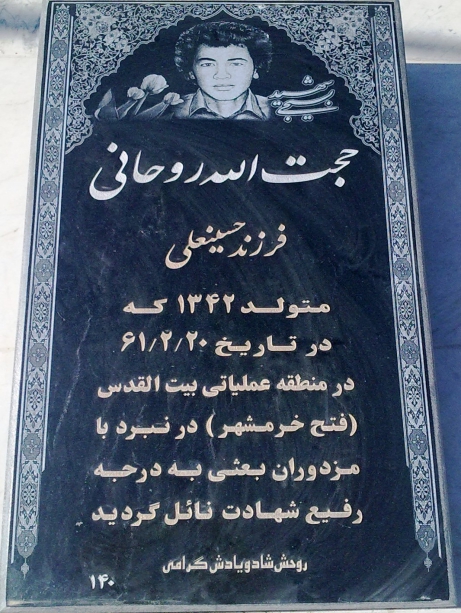 شهید بسیجی
حجت الله روحانی
فرزند حسینعلی
متولد ۱۳۴۲ که
در تاریخ ۶۱/۲/۲۰
در منطقه عملیاتی بیت القدس
(فتح خرمشهر) در نبرد با
مزدوران بعثی به درجه
رفیع شهادت نائل گردید
روحش شاد و یادش گرامی
۱۴۰